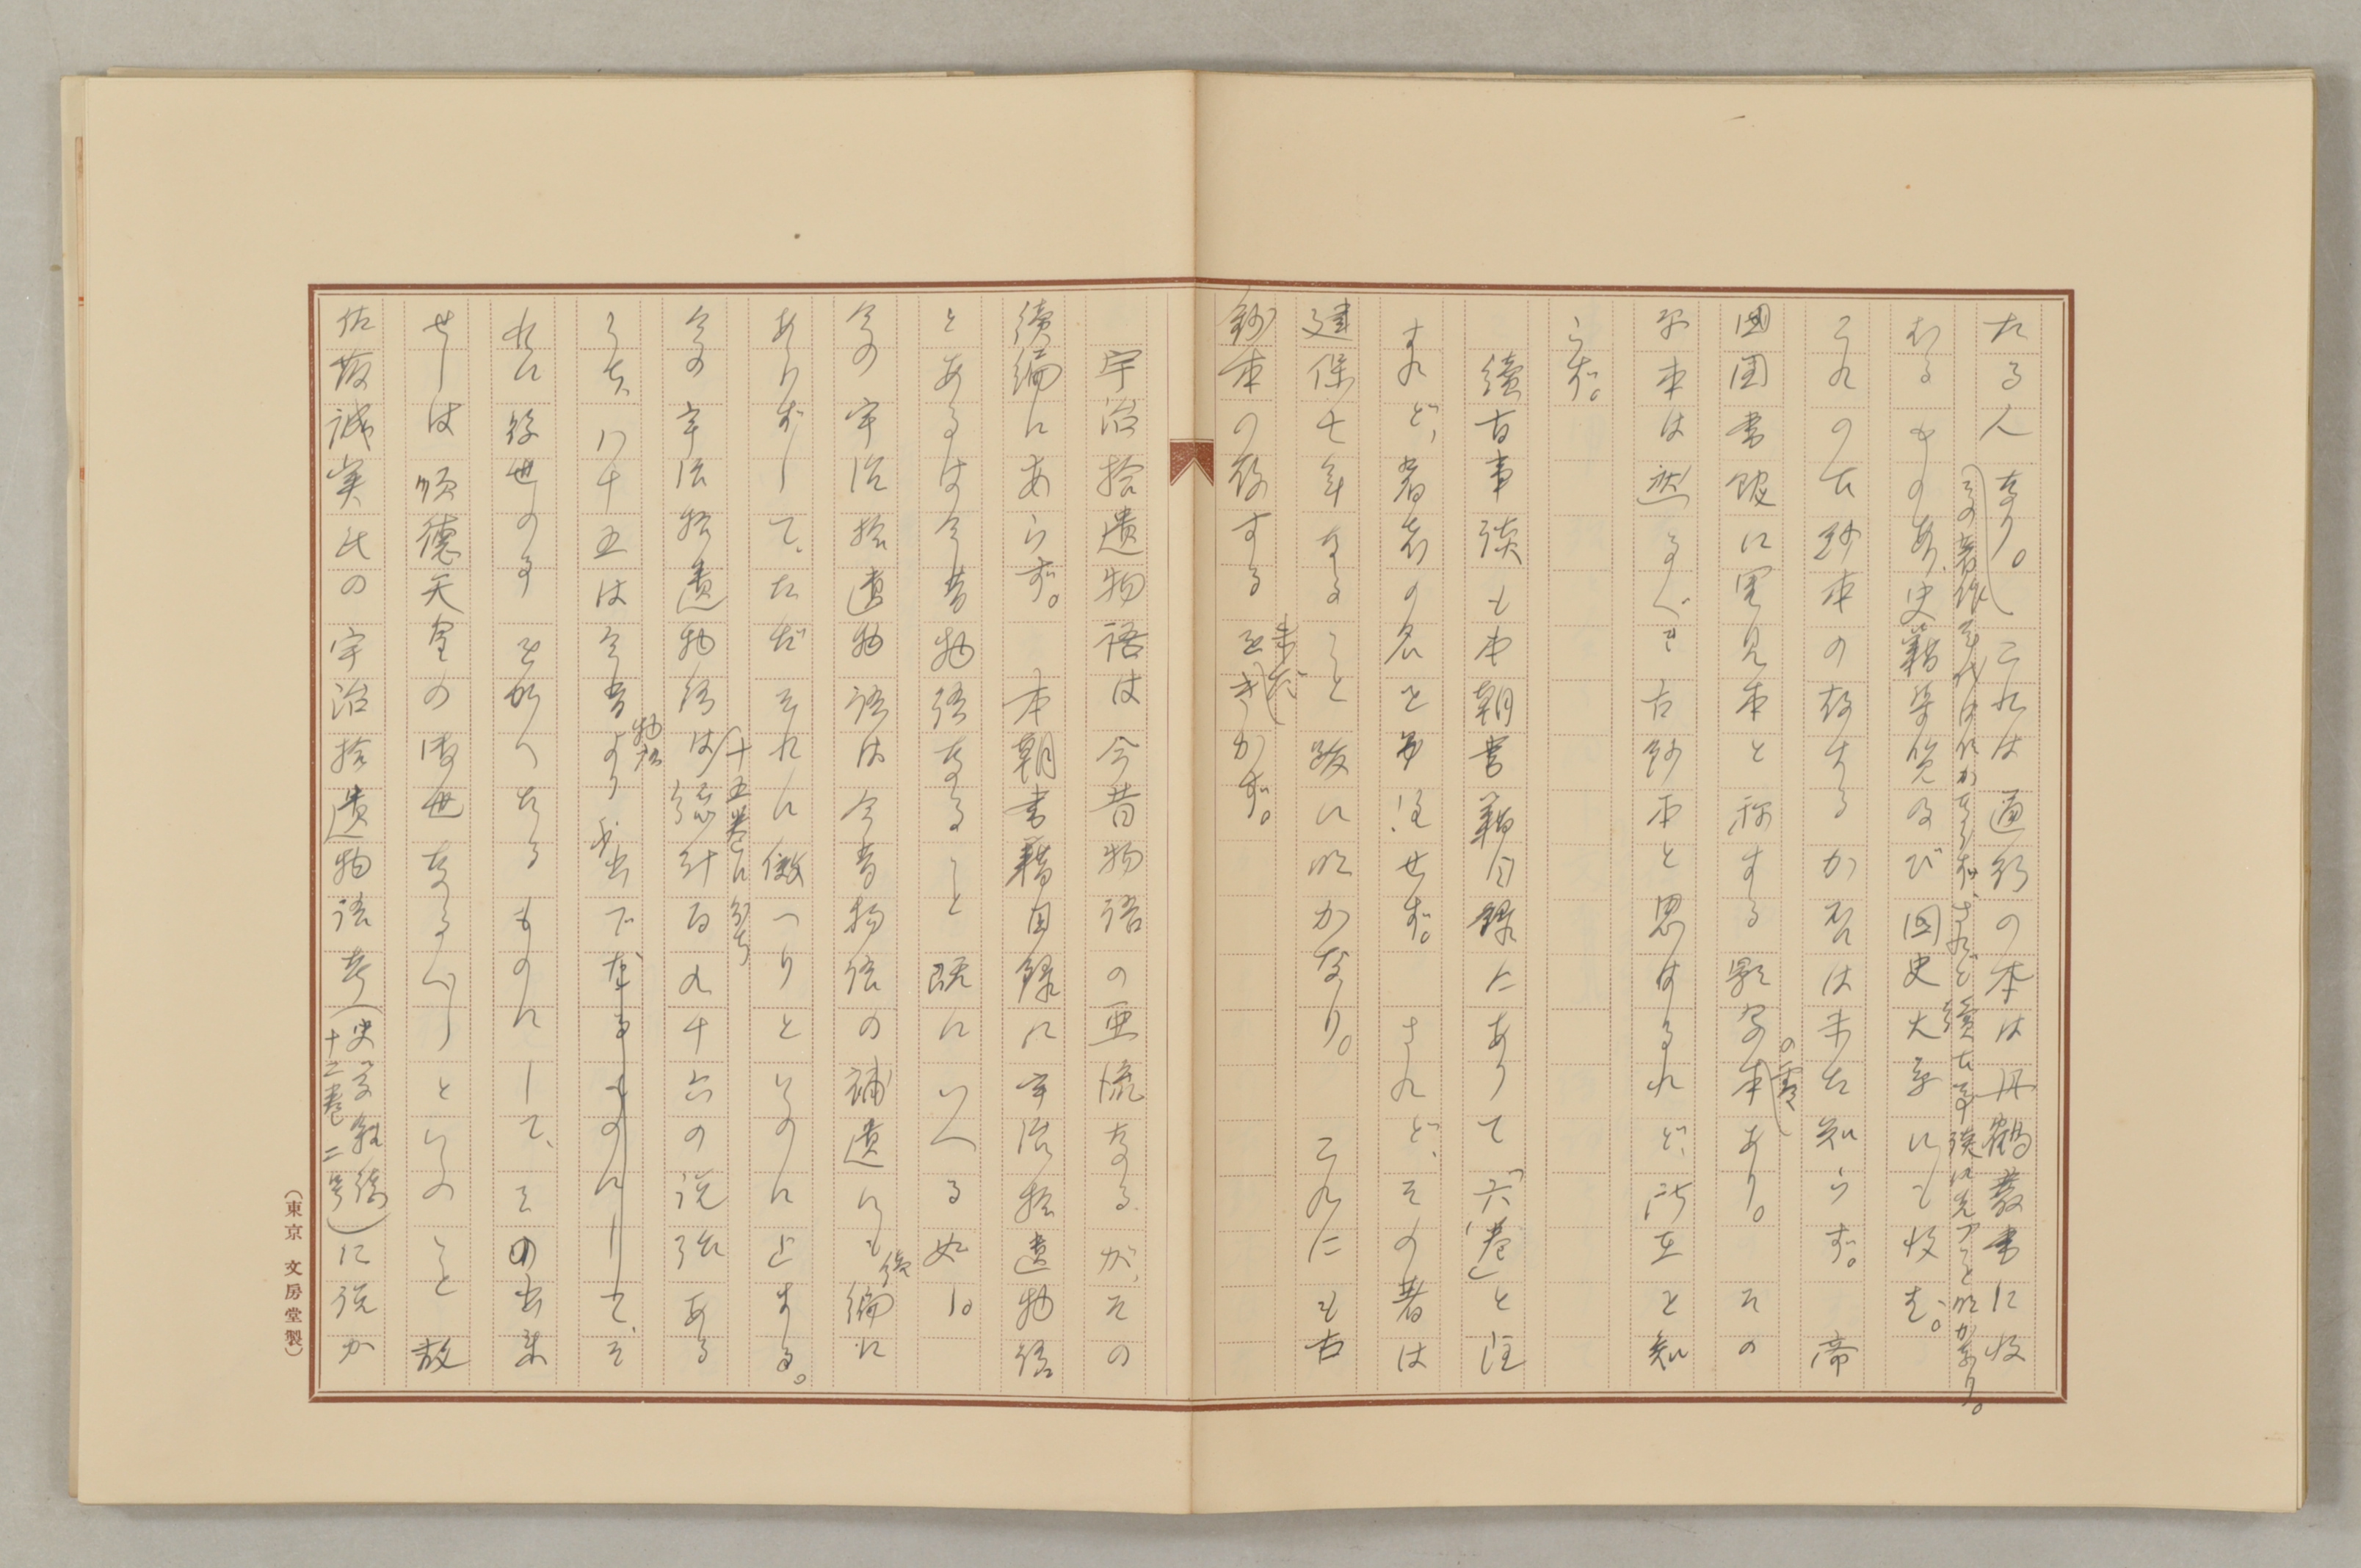 たる人なり。これは通行の本は丹鶴叢書に收
その著作年代は明かならず、されど續古事談に先つこと明かなり。
むるものあり、史籍集覽及び国史大系にも收む。
これの古鈔本の存するか否は未だ知らず。帝
国図書館に異見本と称する影写本あり。その
の零
原本は遡るべき古鈔本と思はるれど、所在を知
らず。
續古事談も本朝書籍目録にありて「六巻」と註
すれど、著者の名を註せず。されど、その著は
建保七年なること跋に明かなり。これにも古
鈔本の存するをきかず。
未だ
宇治拾遺物語は今昔物語の亜流なるが、その
續編にあらず。本朝書籍目録に宇治拾遺物語
とあるは今昔物語なること既にいへる如し。
今の宇治拾遺物語は今昔物語の補遺にも編に
後
あらずして、ただそれに倣へりといふに止まる。
十五巻に分ち
今の宇治拾遺物語は總計百九十六の説話ある
うち、八十五は今昔より出でたるものにして、そ
物語
れに後世の事を加へたるものにして、その出来
せしは順徳天皇の御世なるべしといふこと故
佐藤誠実氏の宇治拾遺物語考(史学雑誌
十二巻二号)に説か
(東京 文房堂製)